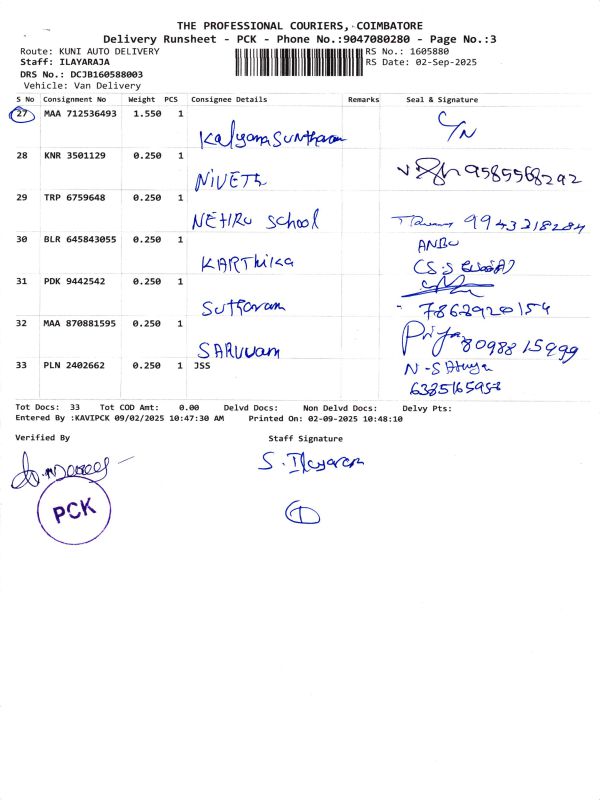 THE PROFESSIONAL COURIERS, COIMBATORE
Delivery Runsheet - PCK - Phone No.:9047080280 - Page No.:3
Route: KUNI AUTO DELIVERY RS No.: 1605880
Staff: ILAYARAJA RS Date: 02-Sep-2025
DRS No.: DCJB160588003
Vehicle: Van Delivery
S No Consignment No Weight PCS Consignee Details Remarks Seal & Signature
27 MAA 712536493 1.550 1
Kalyana Suntharam C/N
28 KNR 3501129 0.250 1
NIVETh 9585568292
29 TRP 6759648 0.250 1
NEHRU School 9943218284
30 BLR 645843055 0.250 1 ANBU
KARThika
31 PDK 9442542 0.250 1
Sutharam 7862920154
32 MAA 870881595 0.250 1 Priya
SARUVAM 8098815999
33 PLN 2402662 0.250 1 JSS
6385165958
Tot Docs: 33 Tot COD Amt: 0.00 Delvd Docs: Non Delvd Docs: Delvy Pts:
Entered By :KAVIPCK 09/02/2025 10:47:30 AM Printed On: 02-09-2025 10:48:10
Verified By Staff Signature
S. Ilayaram
PCK
1